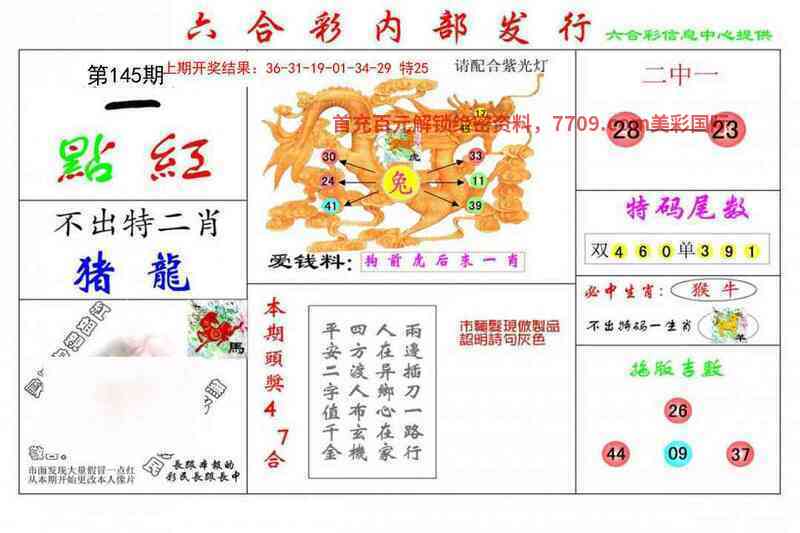 六合彩内部发行
六合彩信息中心提供
第145期
上期开奖结果：36-31-19-01-34-29 特25
请配合紫光灯
一
點 紅
不出特二肖
猪 龍
馬
市面发现大量假冒一点红
从本期开始更改本人像片
長跟本報的
彩民長跟長中
首充百元解锁绝密资料，7709.com美彩国际
17
45
虎
30
33
24
兔
11
41
39
爱钱料：
狗前虎后东一肖
本期頭獎47合
雨邊插刀一路行
人在异鄉心在家
四方渡人布玄機
平安二字值千金
市麵髮現倣製品
認明詩句灰色
二中一
28
23
特码尾数
双460单391
必中生肖：
猴牛
不出特码一生肖
羊
拖版吉数
26
44
09
37